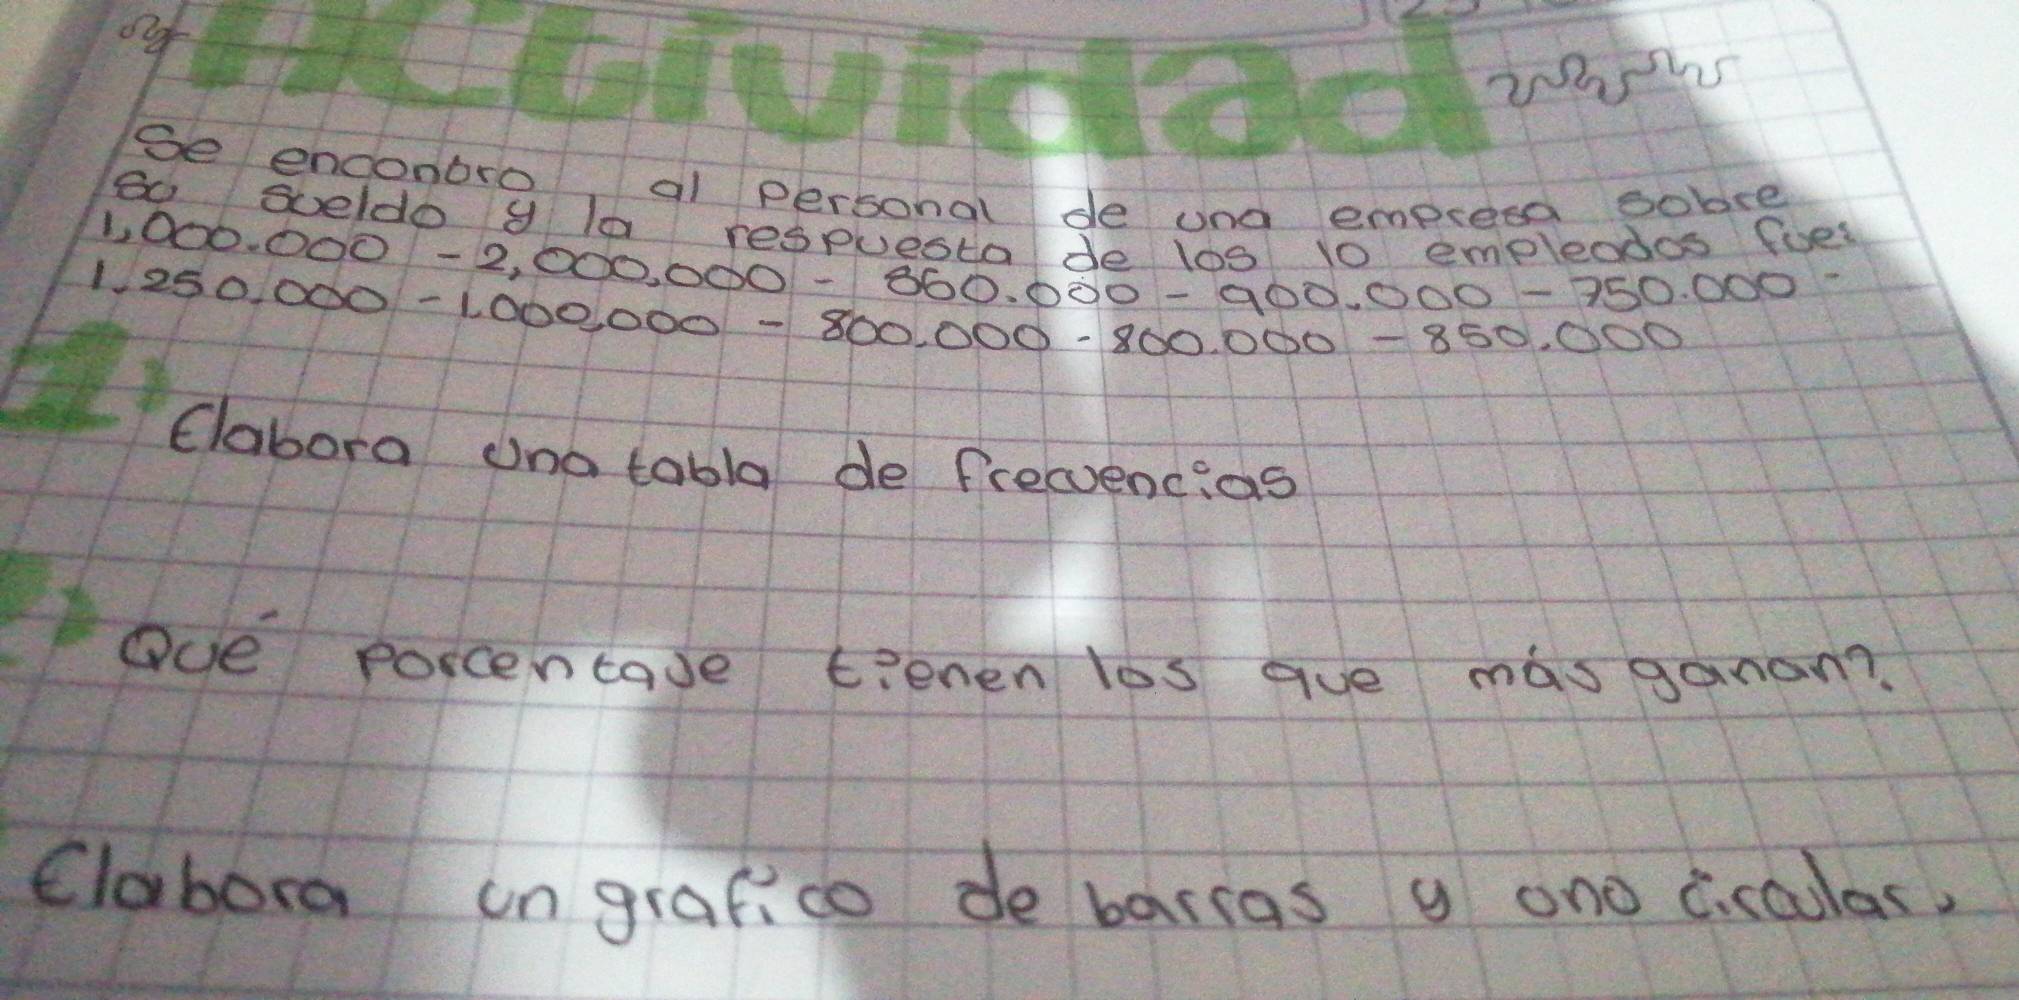 Actividad
Se encontro al personal de una empresa sobre
su sueldo y la respuesta de los 10 empleados fue:
1,000.000 - 2,000,000 - 860.000 - 900.000 - 750.000 -
1.250.000 - 1.000,000 - 800.000 - 800.000 - 850.000
1) Elabora una tabla de frecuencias
2) Qué porcentaje tienen los que más ganan?
Elabora un grafico de barras y uno circular,